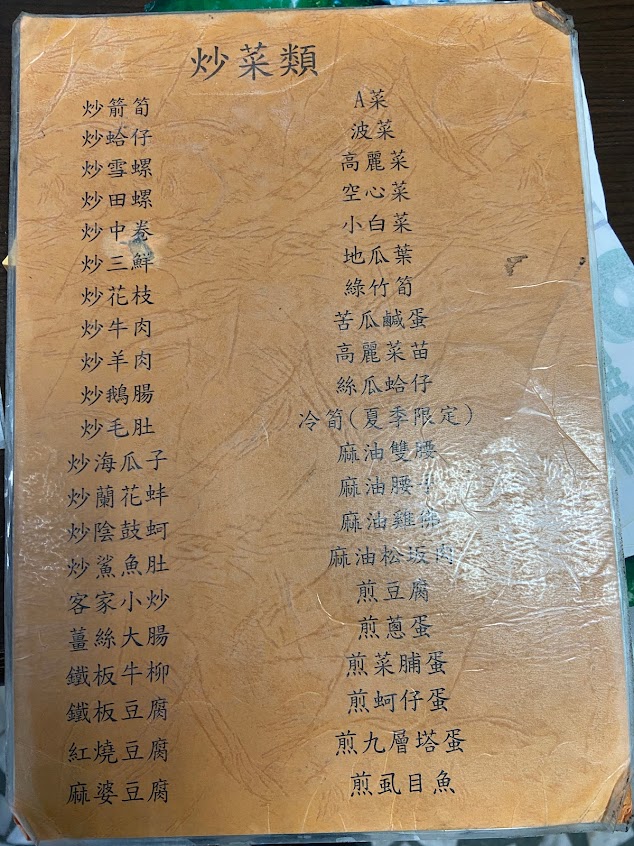 炒菜類
炒箭筍
炒蛤仔
炒雪螺
炒田螺
炒中卷
炒三鮮
炒花枝
炒牛肉
炒羊肉
炒鵝腸
炒毛肚
炒海瓜子
炒蘭花蚌
炒陰鼓蚵
炒鯊魚肚
客家小炒
薑絲大腸
鐵板牛柳
鐵板豆腐
紅燒豆腐
麻婆豆腐
A菜
波菜
高麗菜
空心菜
小白菜
地瓜葉
綠竹筍
苦瓜鹹蛋
高麗菜苗
絲瓜蛤仔
冷筍(夏季限定)
麻油雙腰
麻油腰子
麻油雞佛
麻油松坂肉
煎豆腐
煎蔥蛋
煎菜脯蛋
煎蚵仔蛋
煎九層塔蛋
煎虱目魚